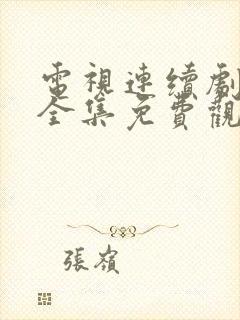 電視連續劇
全集免費觀
張嶺